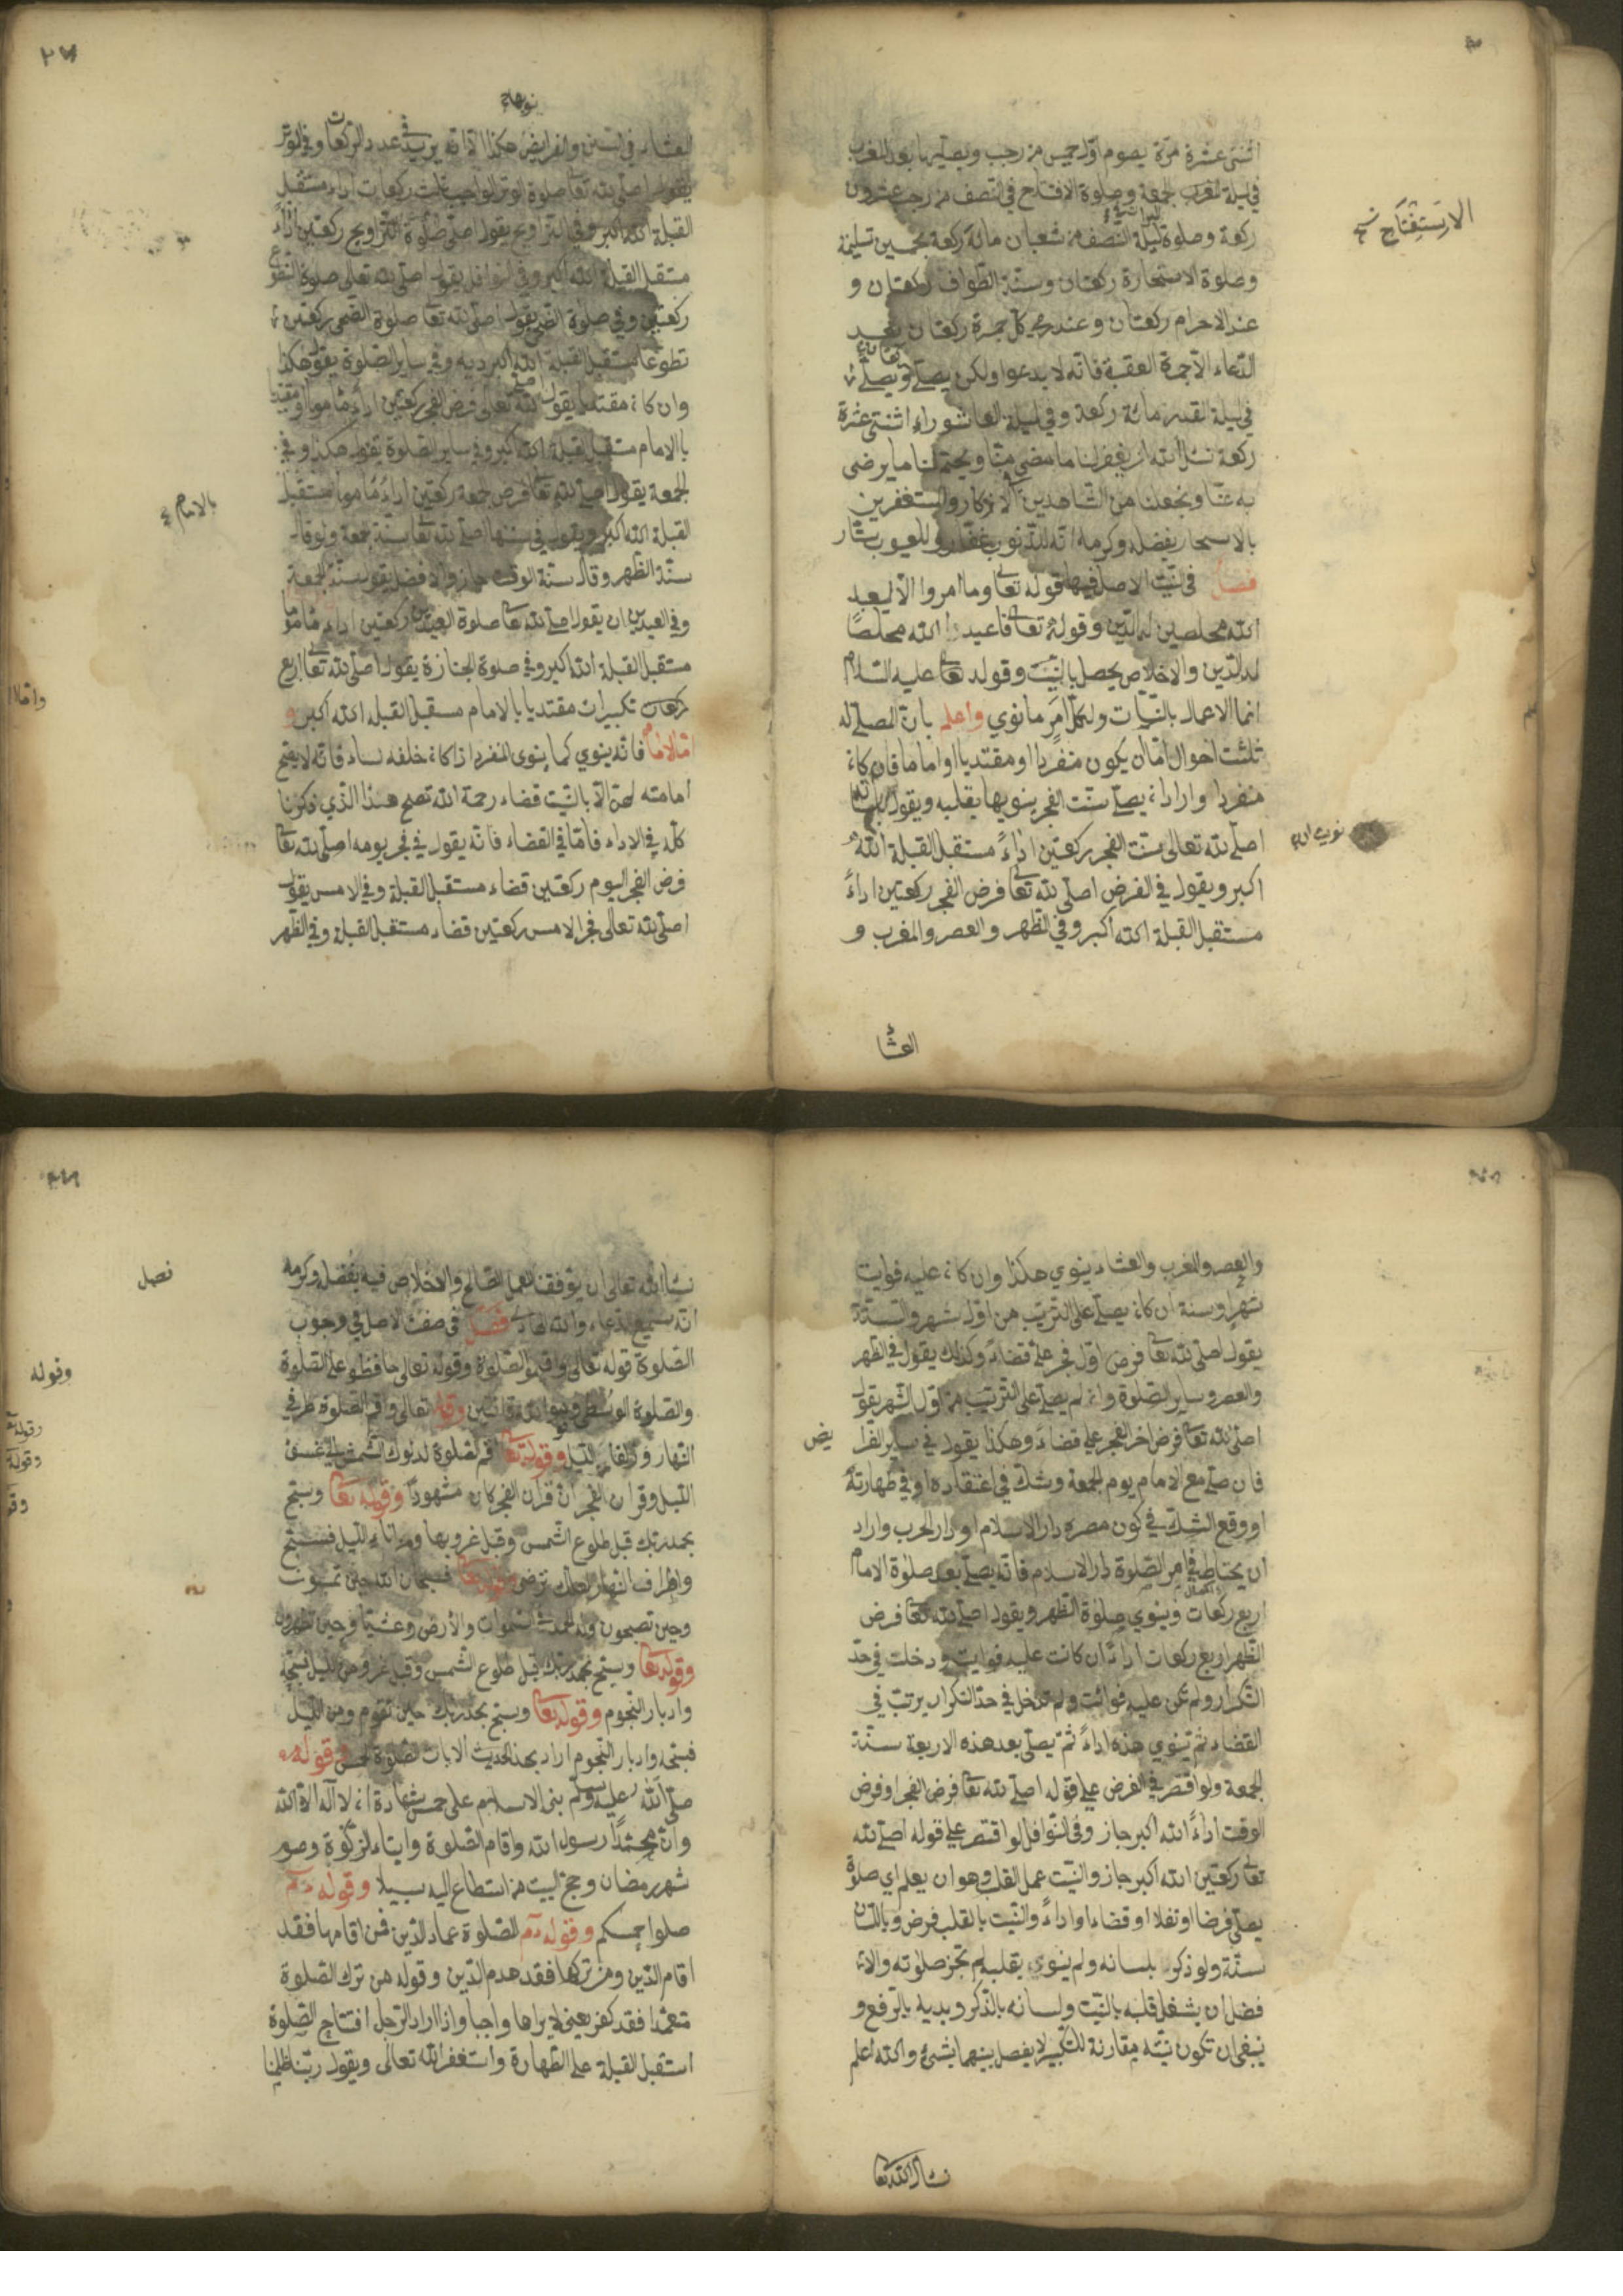 اثنتى عشرة مرّة يصوم اوّل خميس من رجب ويصلّيها بعد المغرب
في ليلة الجمعة وصلوة الافتتاح في النصف من رجب عشرون
الاستفتاح
ركعة وصلوة ليلة النصف من شعبان مائة ركعة بخمسين تسليمة
وصلوة الاستخارة ركعتان وسنّة الطواف ركعتان و
عند الاحرام ركعتان وعند رمي كلّ جمرة ركعتان بعد
الدّعاء الاّ جمرة العقبة فانّه لا يدعوا ولكن يصلّي ويصلّي
في ليلة القدر مائة ركعة وفي ليلة العاشوراء اثنتى عشرة
ركعة نسئل الله ان يغفر لنا ما مضى منّا ويختم لنا ما يرضى
به عنّا ويجعلنا من الشّاهدين الاذكار والمستغفرين
بالاسحار بفضله وكرمه انّه للذّنوب غفّار وللعيوب ستّار
فصل في النيّت الاصل فيها قوله تعا وما امروا الاّ ليعبد
الله مخلصين له الدّين وقوله تعا فاعبدوا الله مخلصًا
له الدّين والاخلاص يحصل بالنيّت وقوله عليه السّلام
انما الاعمال بالنيّات ولكلّ امرٍ ما نوي واعلم بانّ المصلّي له
ثلثت احوال امّا ان يكون منفردا او مقتديا او اماما فان كان
منفردا واراد ان يصلّي سنّت الفجر ينويها بقلبه ويقول بلسانه
نويت ان
اصلّي لله تعالى سنّت الفجر ركعتين اداءً مستقبل القبلة الله
اكبر ويقول في الفرض اصلّي لله تعا فرض الفجر ركعتين اداءً
مستقبل القبلة الله اكبر وفي الظهر والعصر والمغرب و
العشاء
٢٧
العشاء في السنن والفرايض هكذا الاّ انّه يزيد في عدد الركعات وفي الوتر
يقول اصلّي لله تعا صلوة الوتر الواجب ثلث ركعات اداء مستقبل
القبلة الله اكبر وفي التراويح يقول اصلّي صلوة التراويح ركعتين اداءً
مستقبل القبلة الله اكبر وفي النوافل يقول اصلّي لله تعالى صلوة التطوع
ركعتين وفي صلوة الضحى يقول اصلّي لله تعا صلوة الضحى ركعتين
تطوّعا مستقبل القبلة الله اكبر وفي ساير الصّلوة يقول هكذا
وان كان مقتديا يقول اصلي لله تعالى فرض الفجر ركعتين اداءً مأموما مقتديا
بالامام مستقبل القبلة الله اكبر وفي ساير الصّلوة يقول هكذا وفي
الجمعة يقول اصلّي لله تعا فرض جمعة ركعتين اداءً مأموما مستقبل
بالامام
القبلة الله اكبر ويقول في سننها اصلّي لله تعا سنّة جمعة ولو قال
سنّة الظهر وقال سنّة الوقت جاز والافضل يقول سنّة الجمعة
وفي العيدين ان يقول اصلّي لله تعا صلوة العيد ركعتين اداء مأموما
مستقبل القبلة الله اكبر وفي صلوة الجنازة يقول اصلّي لله تعا اربع
تكبيرات مقتديا بالامام مستقبل القبلة الله اكبر و
امّا الامام فانّه ينوي كما ينوي المنفرد اذا كان خلفه نساء فانّه لا يصحّ
امامته لهنّ الاّ بالنيّت قضاء رحمة الله تصح هذا الذي ذكرنا
كلّه في الاداء فامّا في القضاء فانّه يقول في فجر يومه اصلّي لله تعا
فرض الفجر اليوم ركعتين قضاء مستقبل القبلة وفي الامس يقول
اصلّي لله تعالى فجر الامس ركعتين قضاء مستقبل القبلة وفي الظهر
والعصر والمغرب والعشاء ينوي هكذا وان كان عليه فوايت
شهر او سنة ان كان يصلّي على الترتيب من اوّل شهر والسنة
يقول اصلّي لله تعا فرض اوّل فجر عليّ قضاءً وكذلك يقول في الظهر
والعصر وساير الصّلوة وان لم يصلّي على الترتيب من اوّل الشهر يقول
اصلّي لله تعا فرض اخر الفجر عليّ قضاءً وهكذا يقول في ساير الفرا
يض
فان صلّى مع الامام يوم الجمعة وشكّ في اعتقاده او في طهارته
او وقع الشكّ في كون مصره دار الاسلام او دار الحرب واراد
ان يحتاط في امر الصّلوة دار الاسلام فانّه يصلّي بعد صلوة الامام
اربع ركعات وينوي صلوة الظهر ويقول اصلّي لله تعا فرض
الظهر اربع ركعات اداءً ان كانت عليه فوايت ودخلت في حدّ
التكرار ولم تكن عليه فوائت ولم تدخل في حدّ التكرار يرتب في
القضاء ثمّ ينوي هذه اداءً ثمّ يصلّي بعد هذه الاربعة سنّة
الجمعة ولو اقتصر في الفرض على قوله اصلّي لله تعا فرض الفجر او فرض
الوقت اداءً الله اكبر جاز وفي النوافل لو اقتصر على قوله اصلّي لله
تعا ركعتين الله اكبر جاز والنيّت عمل القلب وهو ان يعلم اي صلوة
يصلّي فرضا او نفلا او قضاء او اداءً والنيّت بالقلب فرض وباللسان
سنّة ولو ذكر بلسانه ولم ينوي بقلبه لم تجز صلوته والا
فضل ان يشغل قلبه بالنيّت ولسانه بالذّكر ويديه بالرّفع و
ينبغي ان تكون نيّته مقارنة للتكبير لا يفصل بينهما بشئ والله اعلم
نسأل الله تعا
نسأل الله تعالى ان يوفقنا لعمل الصّالح والاخلاص فيه بفضله وكرمه
فصل
انّه سميع الدعاء والله الهادي فصل في صفت الاصل في وجوب
الصّلوة قوله تعالى واقيموا الصّلوة وقوله تعالى حافظوا على الصّلوة
وقوله
والصّلوة الوسطى وقوموا لله قانتين وقوله تعالى واقم الصّلوة طرفي
النهار وزلفا من الليل وقوله تعا اقم الصّلوة لدلوك الشّمس الى غسق
وقوله
الليل وقرآن الفجر انّ قرآن الفجر كان مشهودًا وقوله تعا وسبّح
بحمد ربّك قبل طلوع الشّمس وقبل غروبها ومن اناء الليل فسبّح
واطراف النّهار لعلّك ترضى وقوله تعا فسبحان الله حين تمسون
وحين تصبحون وله الحمد في السّموات والأرض وعشيّا وحين تظهرون
وقوله تعا وسبّح بحمد ربّك قبل طلوع الشّمس وقبل غروب ومن الليل فسبّحه
وادبار النّجوم وقوله تعا وسبّح بحمد ربّك حين تقوم ومن الليل
فسبّحه وادبار النّجوم اراد بهذا الحديث الايات الصّلوة الخمس وقوله
صلّى الله عليه وسلّم بنى الاسلام على خمس شهادة ان لا اله الاّ الله
وانّ محمّدًا رسول الله واقام الصّلوة وايتاء الزكوة وصوم
شهر رمضان وحجّ البيت من استطاع اليه سبيلا وقوله
صلوا خمسكم وقوله الصّلوة عماد الدّين فمن اقامها فقد
اقام الدّين ومن تركها فقد هدم الدّين وقوله من ترك الصّلوة
متعمّدا فقد كفر يعني لا يراها واجبا واذا اراد الرّجل افتتاح الصّلوة
استقبل القبلة على الطّهارة واستغفر الله تعالى ويقول ربّنا ظلمنا